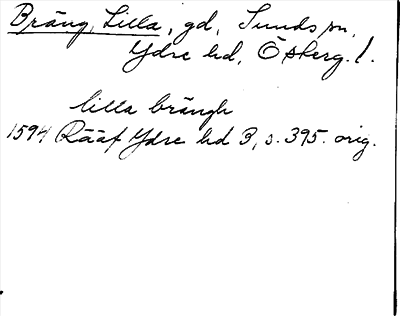 Bräng, Lilla, gd, Sunds sn,
Ydre hd, Österg. l.
lilla brängh
1594 Rääf Ydre hd 3, s. 395. orig.